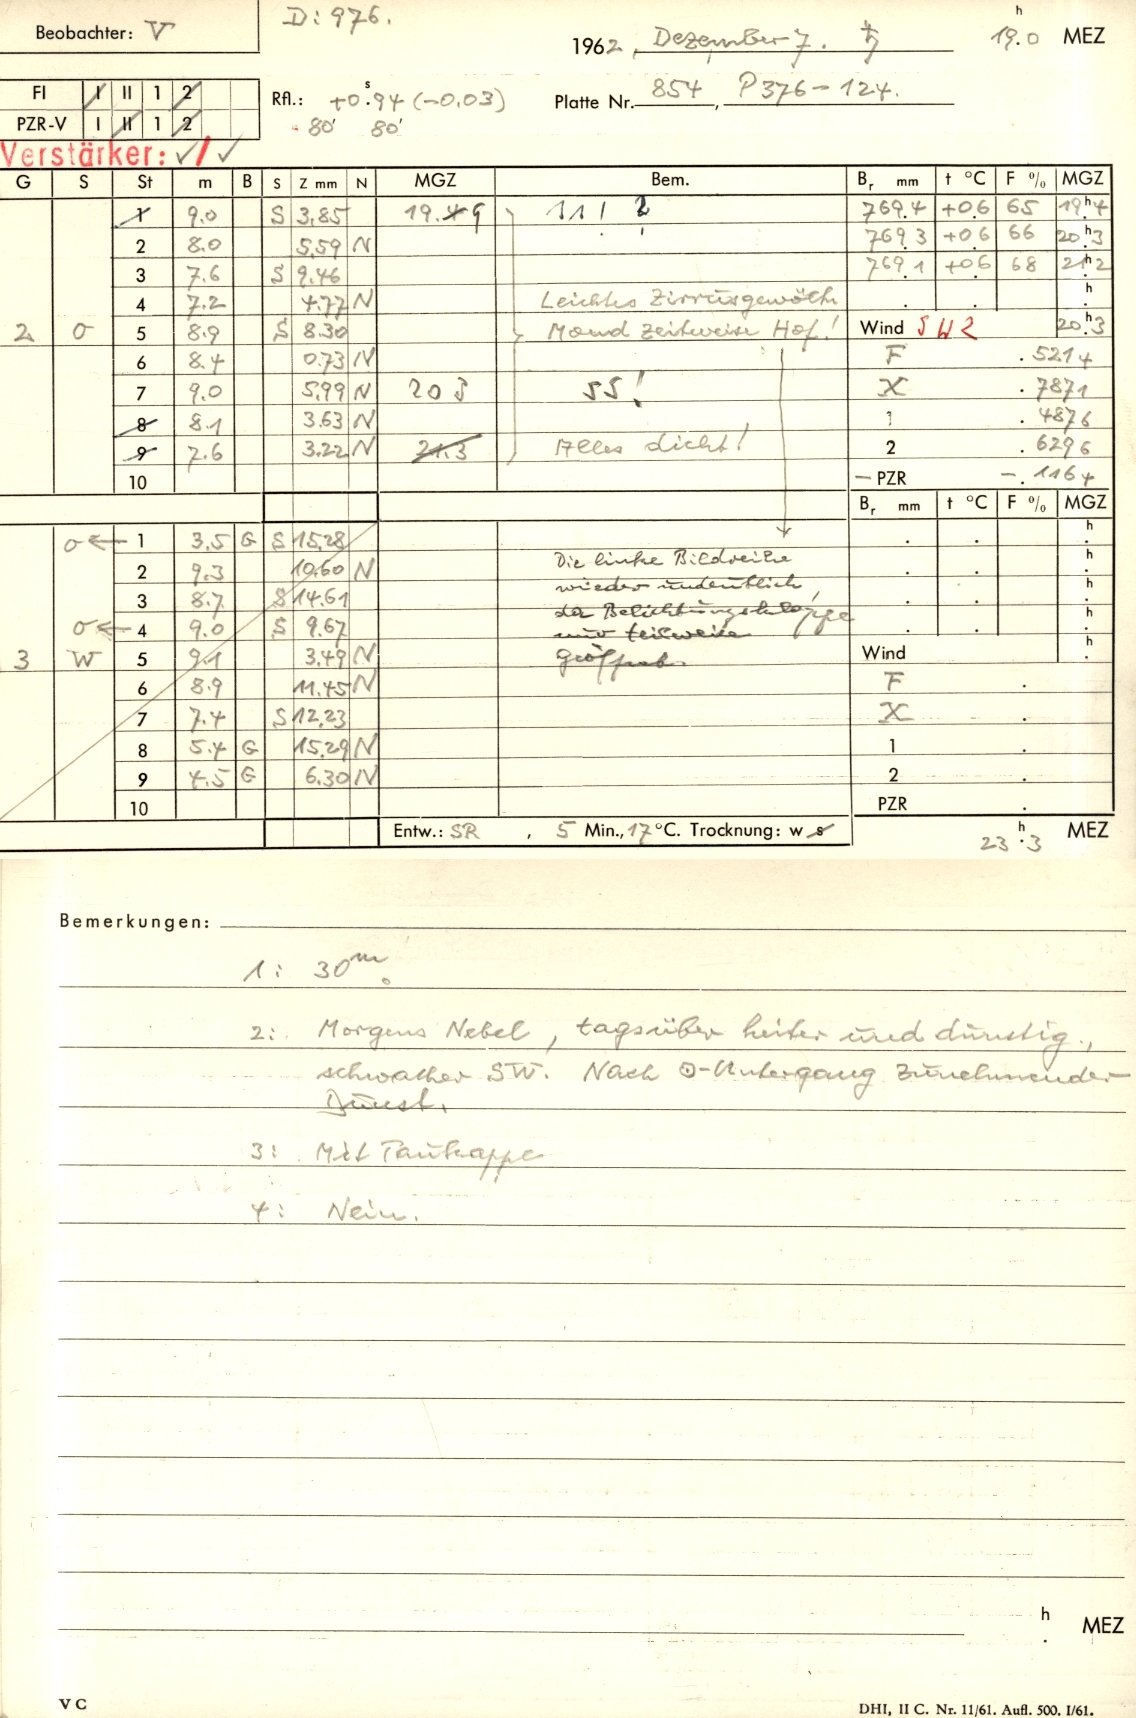 Beobachter: V
D: 976.
1962, Dezember 7. ♄ 19h.0 MEZ
FI I II 1 2
PZR-V I II 1 2
Rfl.: +0s.94 (-0.03)
80' 80'
Platte Nr. 854, P376-124.
Verstärker: ✓/✓
G S St m B S Z mm N MGZ Bem. Br mm t °C F % MGZ
1 9.0 S 3,85 19. 769.4 +0.6 65 19h.4
2 8.0 5.59 N 769.3 +0.6 66 20h.3
3 7.6 S 9.46 769.1 +0.6 68 21h.2
4 7.2 4.77 N Leichtes Zirrusgewölk h
2 O 5 8.9 S 8.30 Mond zeitweise Hof! Wind SW2 20h.3
6 8.4 0.73 N F .5214
7 9.0 5,99 N 20 55! X .7871
8 8.1 3.63 N 1 .4876
9 7.6 3.22 N 21.3 Alles dicht! 2 .6296
10 - PZR -.1164
Br mm t °C F % MGZ
O ← 1 3.5 G S 15,28 h
2 9.3 10.60 N Die linke Bildreihe h
3 8.7 S 14.61 wieder undeutlich, h
O ← 4 9.0 S 9.67 der Belichtungsklappe h
nur teilweise
3 W 5 9.1 3.49 N geöffnet. Wind h
6 8.9 11.45 N F .
7 7.4 S 12,23 X .
8 5.4 G 15.29 N 1 .
9 4.5 G 6.30 N 2 .
10 PZR .
Entw.: SR , 5 Min., 17 °C. Trocknung: w s
23h.3 MEZ
Bemerkungen:
1: 30m.
2: Morgens Nebel, tagsüber heiter und dunstig,
schwacher SW. Nach ⊙-Untergang zunehmender
Dunst.
3: Mit Taukappe
4: Nein.
h
. MEZ
V C
DHI, II C. Nr. 11/61. Aufl. 500. I/61.